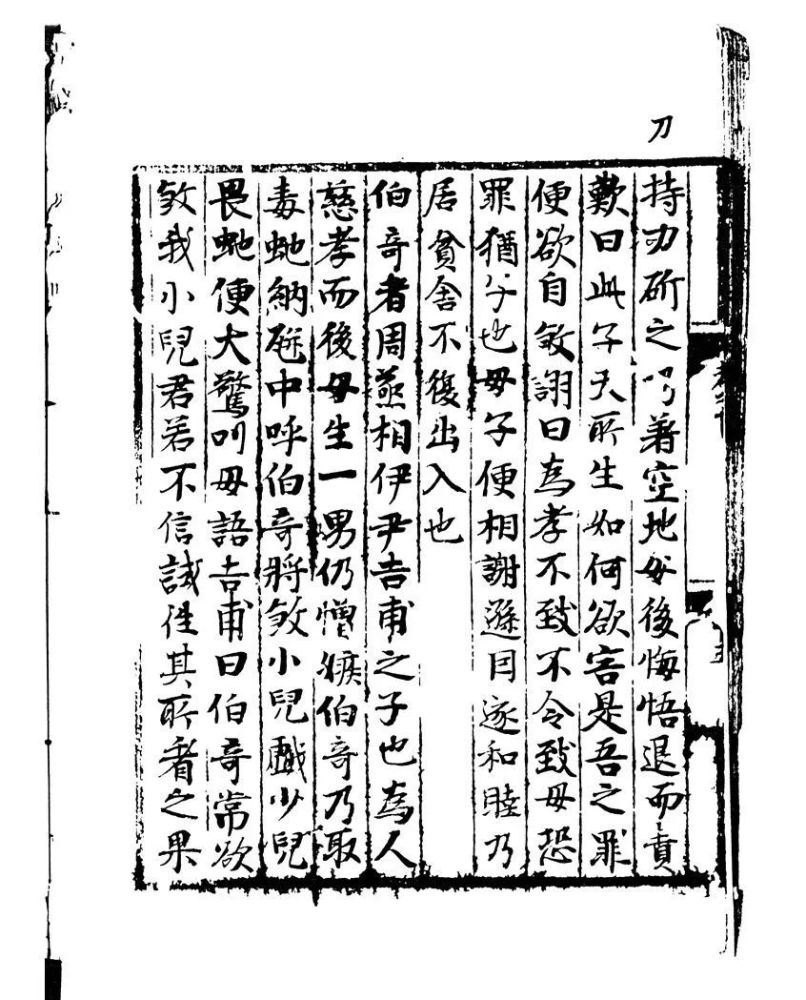 刀
持刃斫之著空地母後悔悟退而責
歎曰此子天所生如何欲害是吾之罪
便欲自煞詡曰為孝不致不令致母恐
罪猶子也母子便相謝遜因遂和睦乃
居貧舍不復出入也
伯奇者周蒸相伊尹吉甫之子也為人
慈孝而後母生一男仍憎嫉伯奇乃取
毒虵納瓶中呼伯奇將煞小兒戲少兒
畏虵便大驚叫母語吉甫曰伯奇常欲
煞我小兒君若不信試往其所看之果